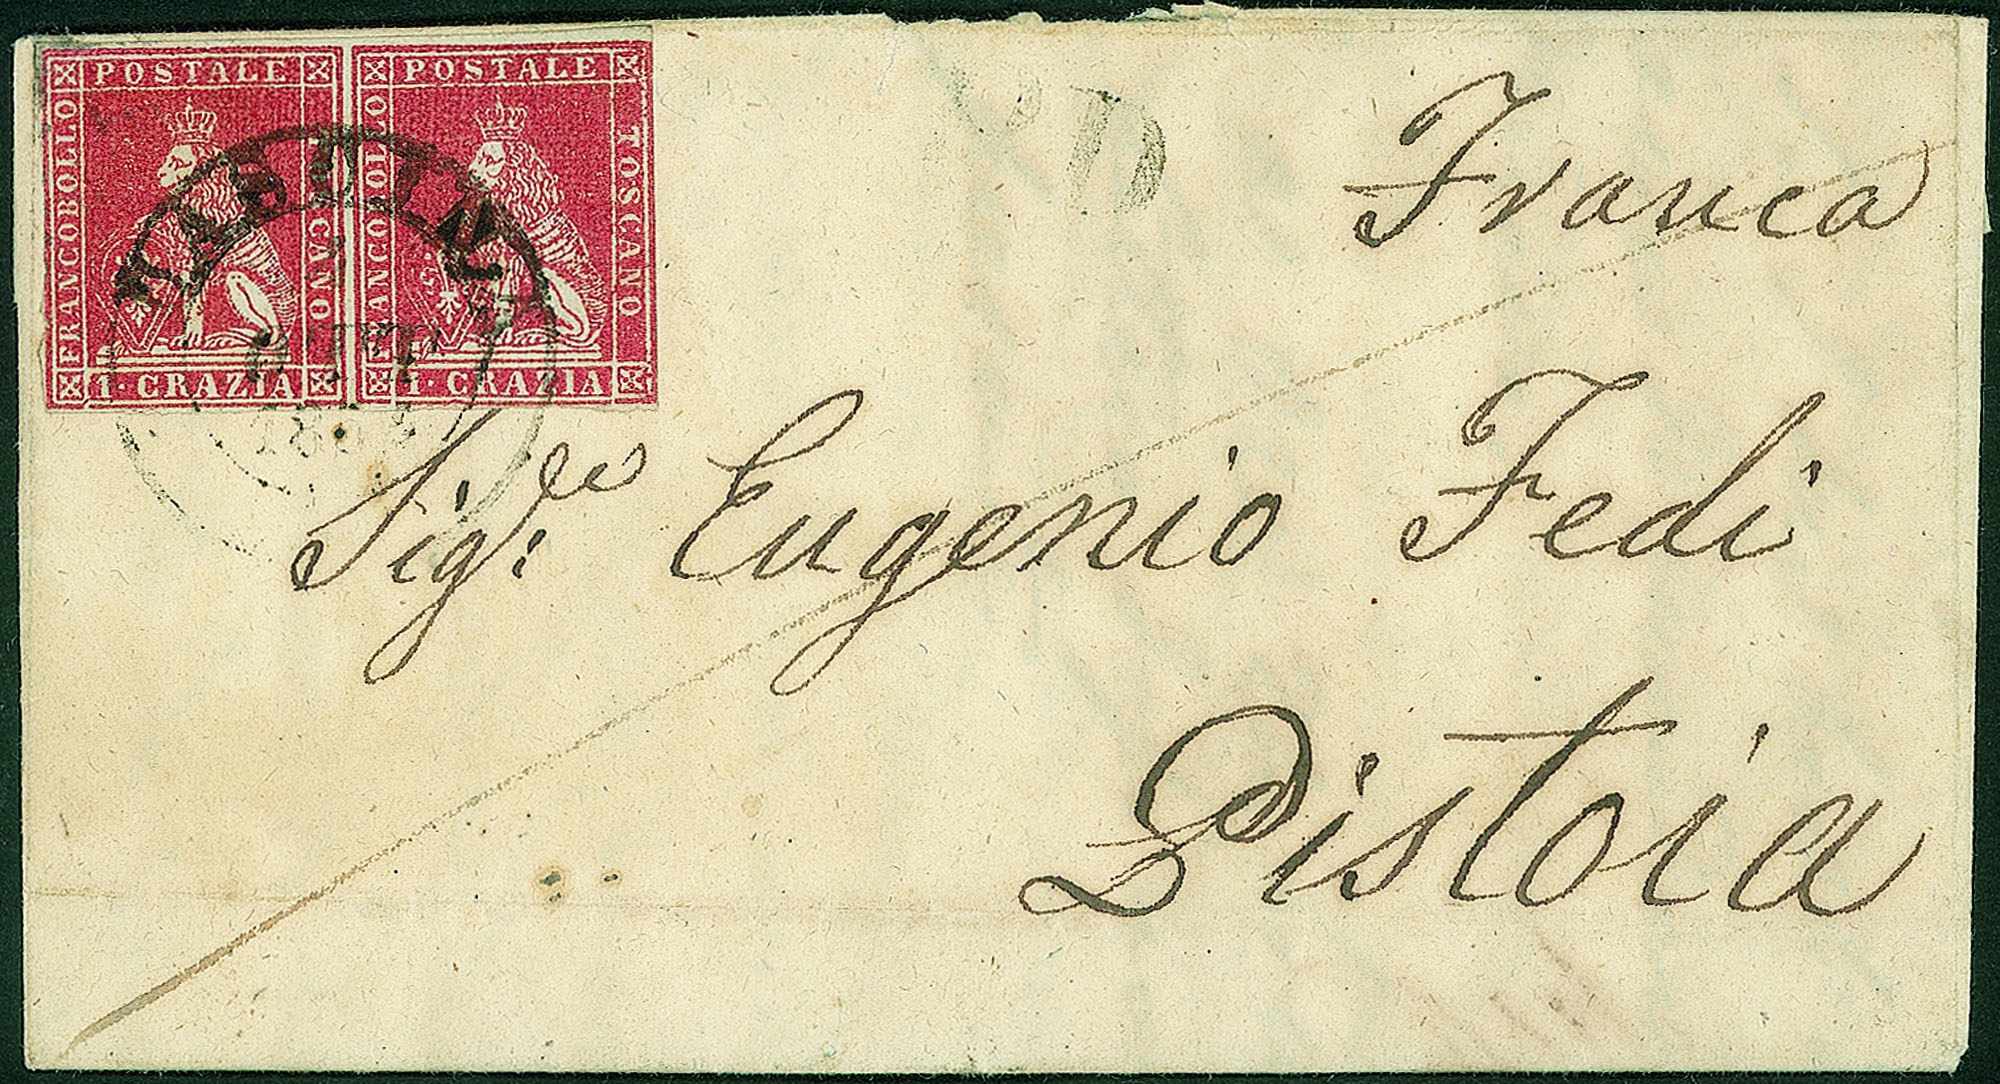 POSTALE POSTALE
FRANCOBOLLO TOSCANO
FRANCOBOLLO TOSCANO
1·CRAZIA 1·CRAZIA
PD
Franca
Sig.re Eugenio Fedi
Pistoia